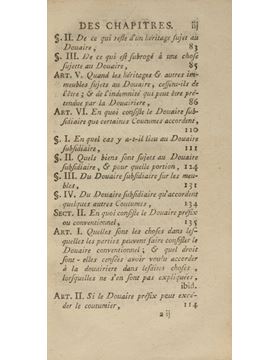 DES CHAPITRES. iij
§. II. De ce qui reste d'un héritage sujet au
Douaire, 83
§. III. De ce qui est subrogé à une chose
sujette au Douaire, 85
ART. V. Quand les héritages & autres im-
meubles sujets au Douaire, cessent-ils de
l'être; & de l'indemnité qui peut être pré-
tendue par la Douairiere, 86
ART. VI. En quoi consiste le Douaire sub-
sidiaire que certaines Coutumes accordent,
110
§. I. En quel cas y a-t-il lieu au Douaire
subsidiaire, 111
§. II. Quels biens sont sujets au Douaire
subsidiaire, & pour quelle portion, 124
§. III. Du Douaire subsidiaire sur les meu-
bles, 131
§. IV. Du Douaire subsidiaire qu'accordent
quelques autres Coutumes, 134
SECT. II. En quoi consiste le Douaire préfix
ou conventionnel, 135
ART. I. Quelles sont les choses dans les-
quelles les parties peuvent faire consister le
Douaire conventionnel; & quel droit
sont-elles censées avoir voulu accorder
à la douairiere dans lesdites choses,
lorsqu'elles ne s'en sont pas expliquées,
ibid.
ART. II. Si le Douaire préfix peut excé-
der le coutumier, 114
a ij